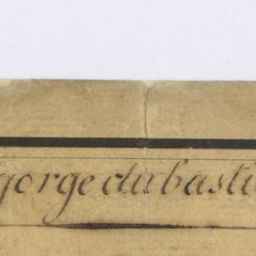 george du basti